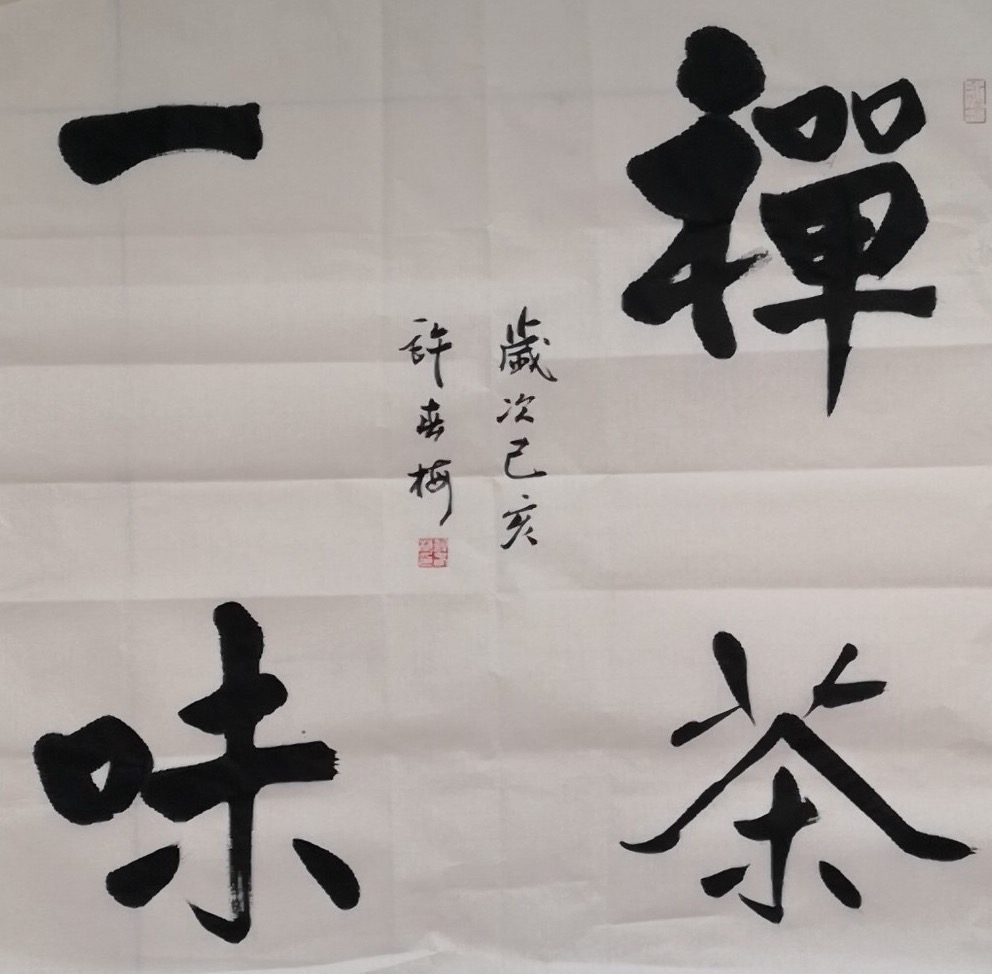 禪茶
一味
歲次己亥
許春梅